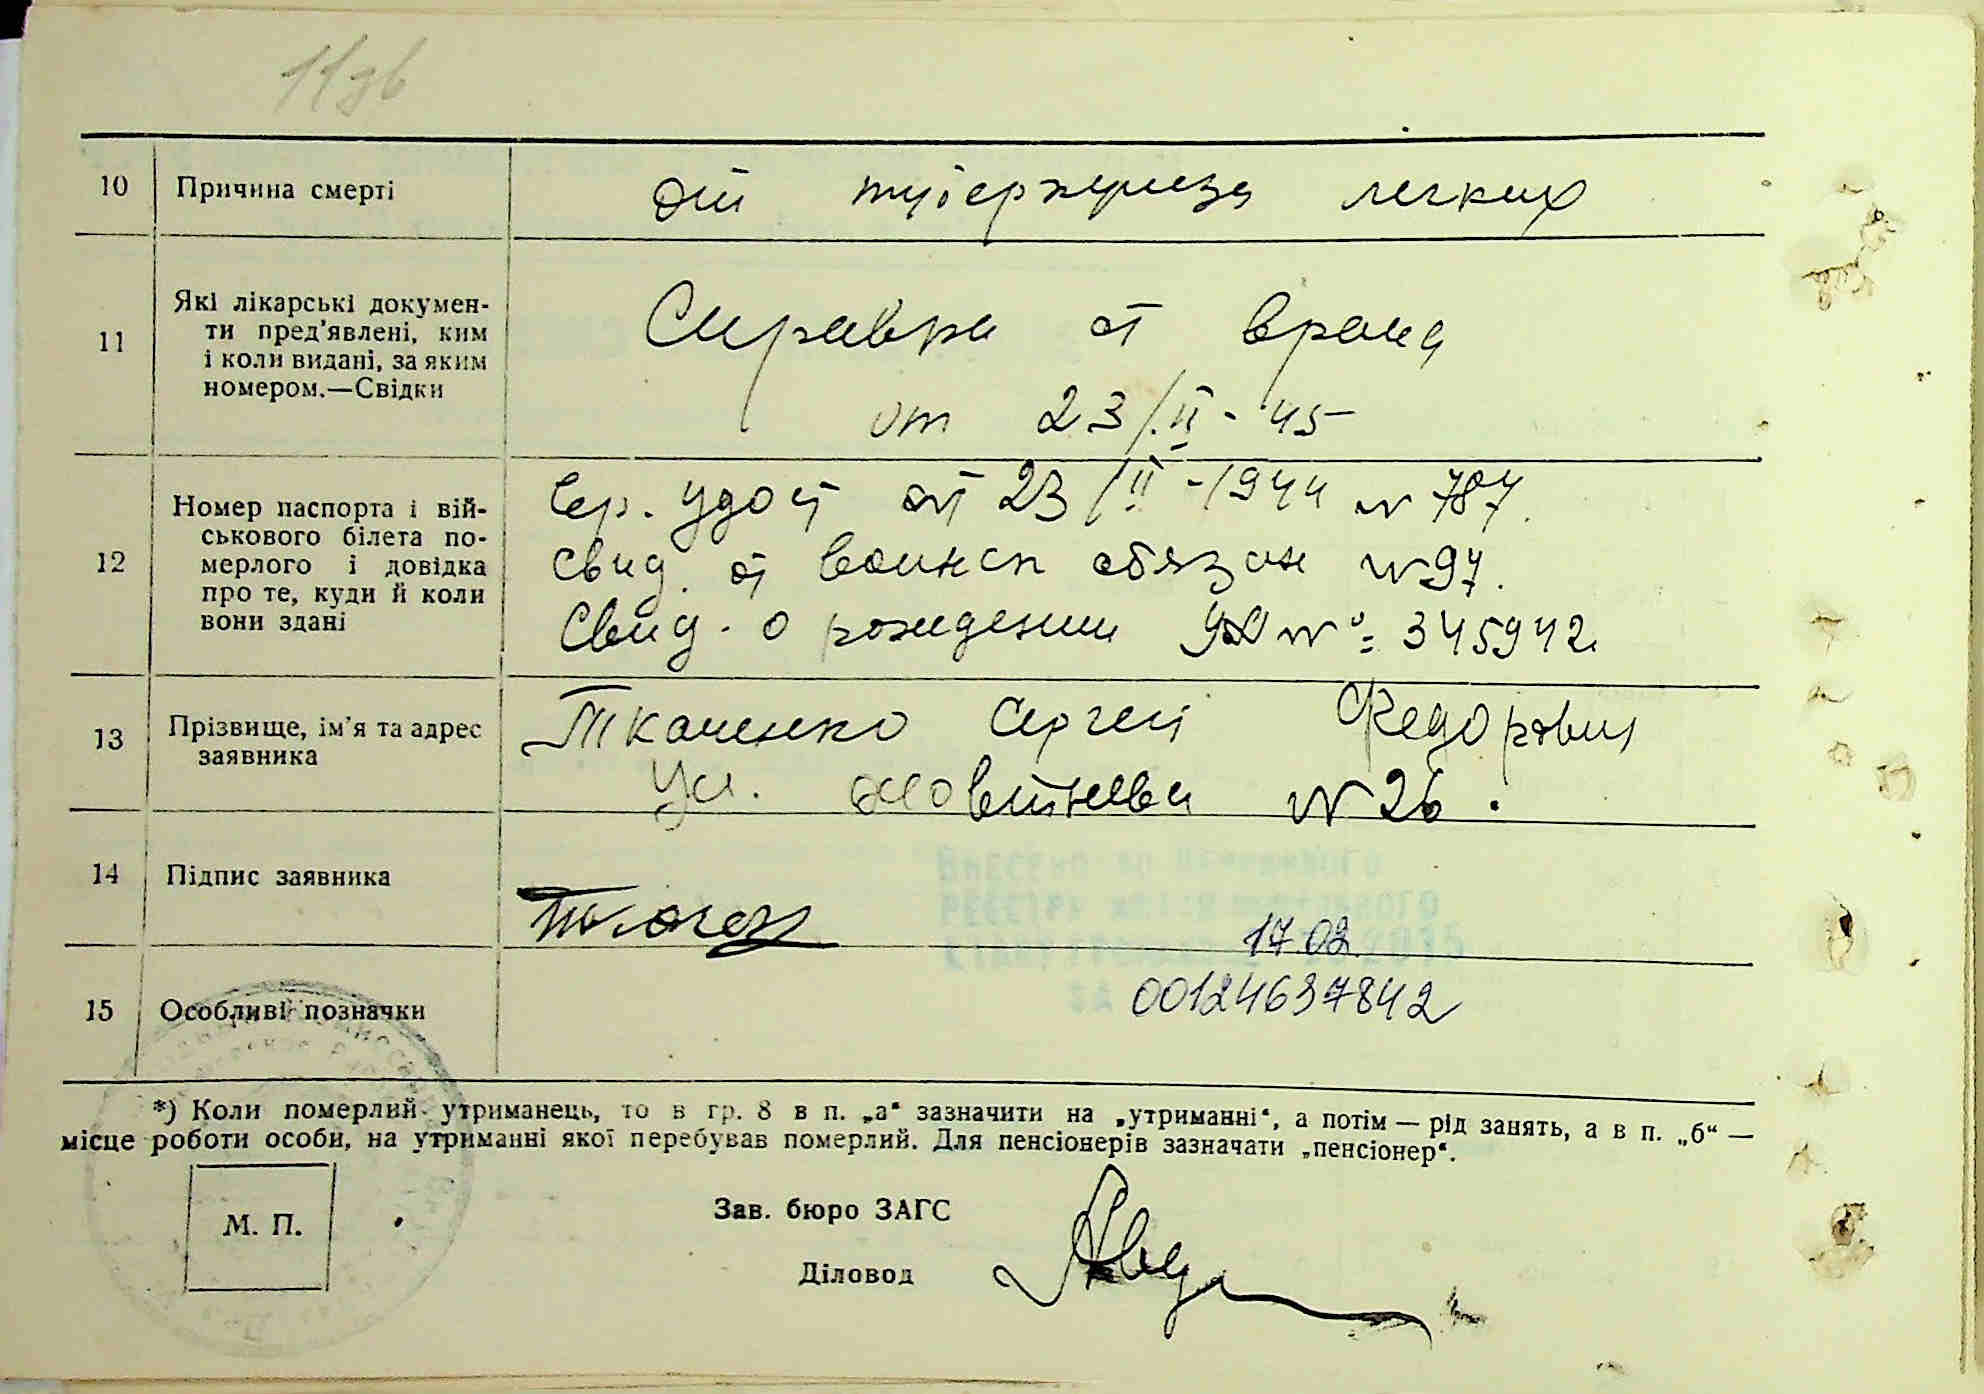 11зв
10 Причина смерті
От туберкулеза легких
11 Які лікарські докумен-
ти пред’явлені, ким
і коли видані, за яким
номером.—Свідки
Справка от врача
от 23/II-45
12 Номер паспорта і вій-
ськового білета по-
мерлого і довідка
про те, куди й коли
вони здані
удост от 23/II-1944 № 787.
Свид. от воинск обязан №97.
Свид. о рождении № 345942
13 Прізвище, ім’я та адрес
заявника
Ткаченко Сергей Федорович
Ул. Жовтнева № 26.
14 Підпис заявника
Внесено до Державного
реєстру актів цивільного
стану громадян 17.02.2015
15 Особливі позначки
за 00124637842
*) Коли померлий утриманець, то в гр. 8 в п. „а“ зазначити на „утриманні“, а потім — рід занять, а в п. „б“ —
місце роботи особи, на утриманні якої перебував померлий. Для пенсіонерів зазначати „пенсіонер“.
М. П.
Зав. бюро ЗАГС
Діловод